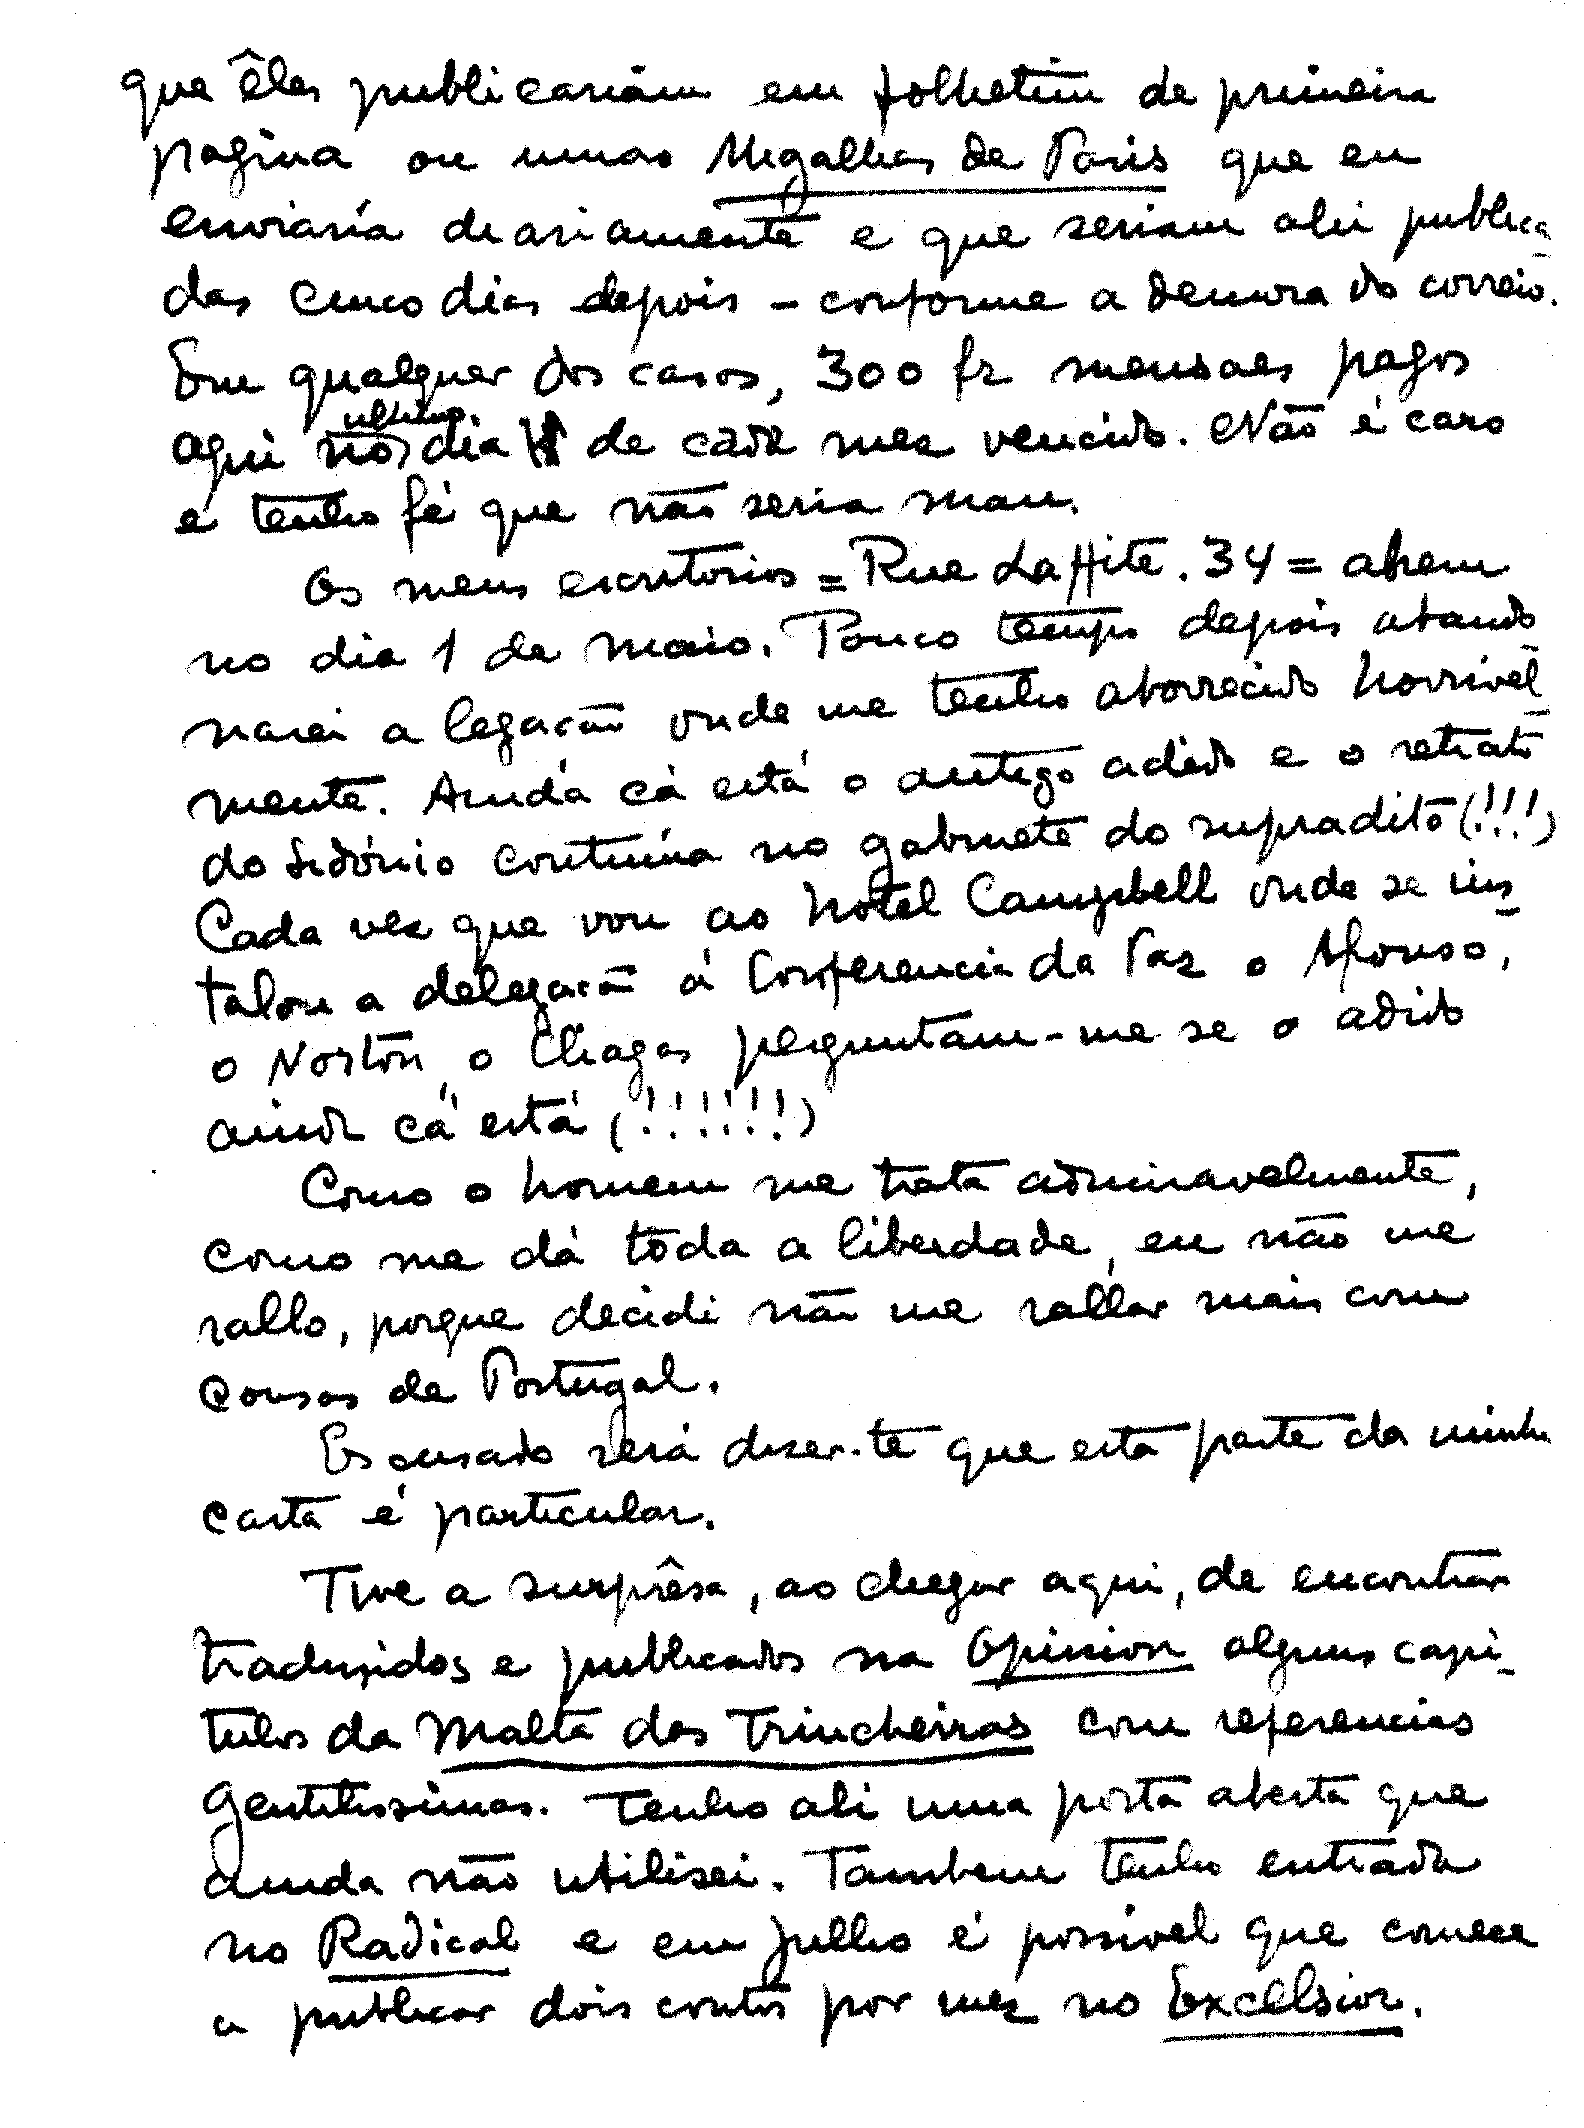 que êles publicariam em folhetim de primeira
pagina ou umas Migalhas de Paris que eu
enviaría diariamente e que seriam ahi publica-
das cinco dias depois – conforme a demora do correio.
Em qualquer dos casos, 300 fr mensaes pagos
aqui no ultimo dia de cada mez vencido. Não é caro
e tenho fé que não seria mau.
Os meus escritorios = Rue Laffite. 34 = abrem
no dia 1 de maio. Pouco tempo depois abando-
narei a legação onde me tenho aborrecido horrivel-
mente. Ainda cá está o antigo adido e o retrato
do Sidónio contínua no gabinete do supradito (!!!)
Cada vez que vou ao hotel Campbell onde se ins-
talou a delegação á Conferencia da Paz o Afonso,
o Norton, o Chagas perguntam-me se o adido
ainda cá está (!!!!!!)
Como o homem me trata admiravelmente,
como me dá tôda a liberdade, eu não me
rallo, porque decidi não me rallar mais com
cousas de Portugal.
Escusado será dizer-te que esta parte da minha
carta é particular.
Tive a surprêsa, ao chegar aqui, de encontrar
traduzidos e publicados na Opinion alguns capi-
tulos da Malta das Trincheiras com referencias
gentilissimas. Tenho ali uma porta aberta que
ainda não utilisei. Tambem tenho entrada
no Radical e em Julho é possivel que comece
a publicar dois contos por mez no Excelsior.